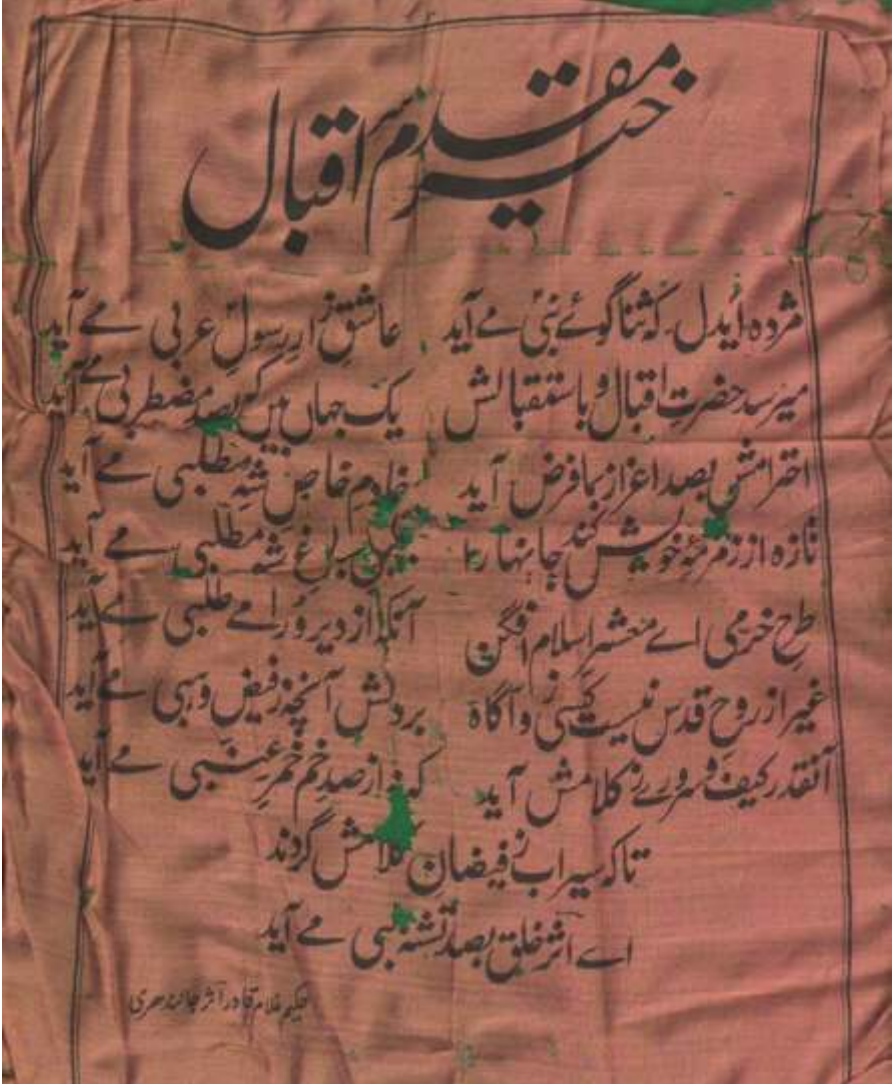 خیر مقدم سر اقبال
مژدہ ایدل کہ ثنا گوئے نبیؐ مے آید عاشقِ زارِ رسولِ عربی مے آید
میرسد حضرتِ اقبال و باستقبالش یک جہاں بیں کہ بصد مضطربی مے آید
احترامش بصد اعزاز بما فرض آید خادمِ خاصِ شہِ مطلبی مے آید
تازہ از زمزمۂ خویش کند جانہا را باغِ شہ مطلبی مے آید
طرحِ خرمی اے معشرِ اسلام افگن آنکہ از دیر ورا مے طلبی مے آید
غیر از روحِ قدس نیست کسی زو آگاہ بردلش آنچہ ز فیضِ وہبی مے آید
آنقدر کیف و سرورے ز کلامش آید کہ نہ از صد خمِ خمرِ عنبی مے آید
تاکہ سیراب ز فیضانِ کلامش گردند
اے اثر خلق بصد تشنہ لبی مے آید
حکیم غلام قادر اثر جالندھری